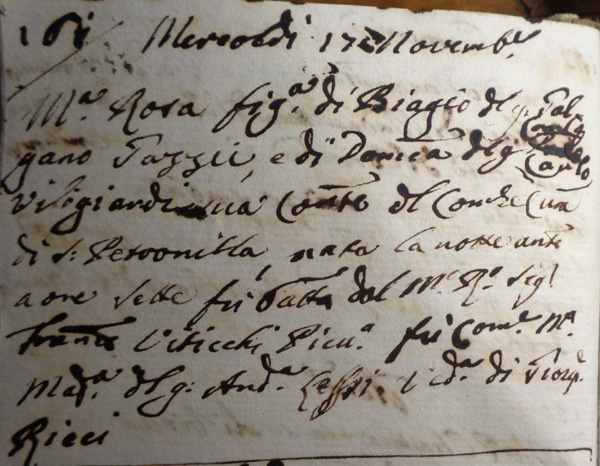 161 Mercoledi 17 Novemb.e
M.a Rosa fig.a di Biagio del q: Gal
gano Tazzii, e di Dom.ca del q Carlo
sua Con.te del Com.le e Cura
di S: Petronilla, nata la notte ant.e
a ore sette fu Batt.a dal M.o R.o Sig.
Franc.o Viticchi Vicu.o fu Com.e M.a
Madd.a del q: And.a Lessi Ved.a di Giosp.e
Ricci